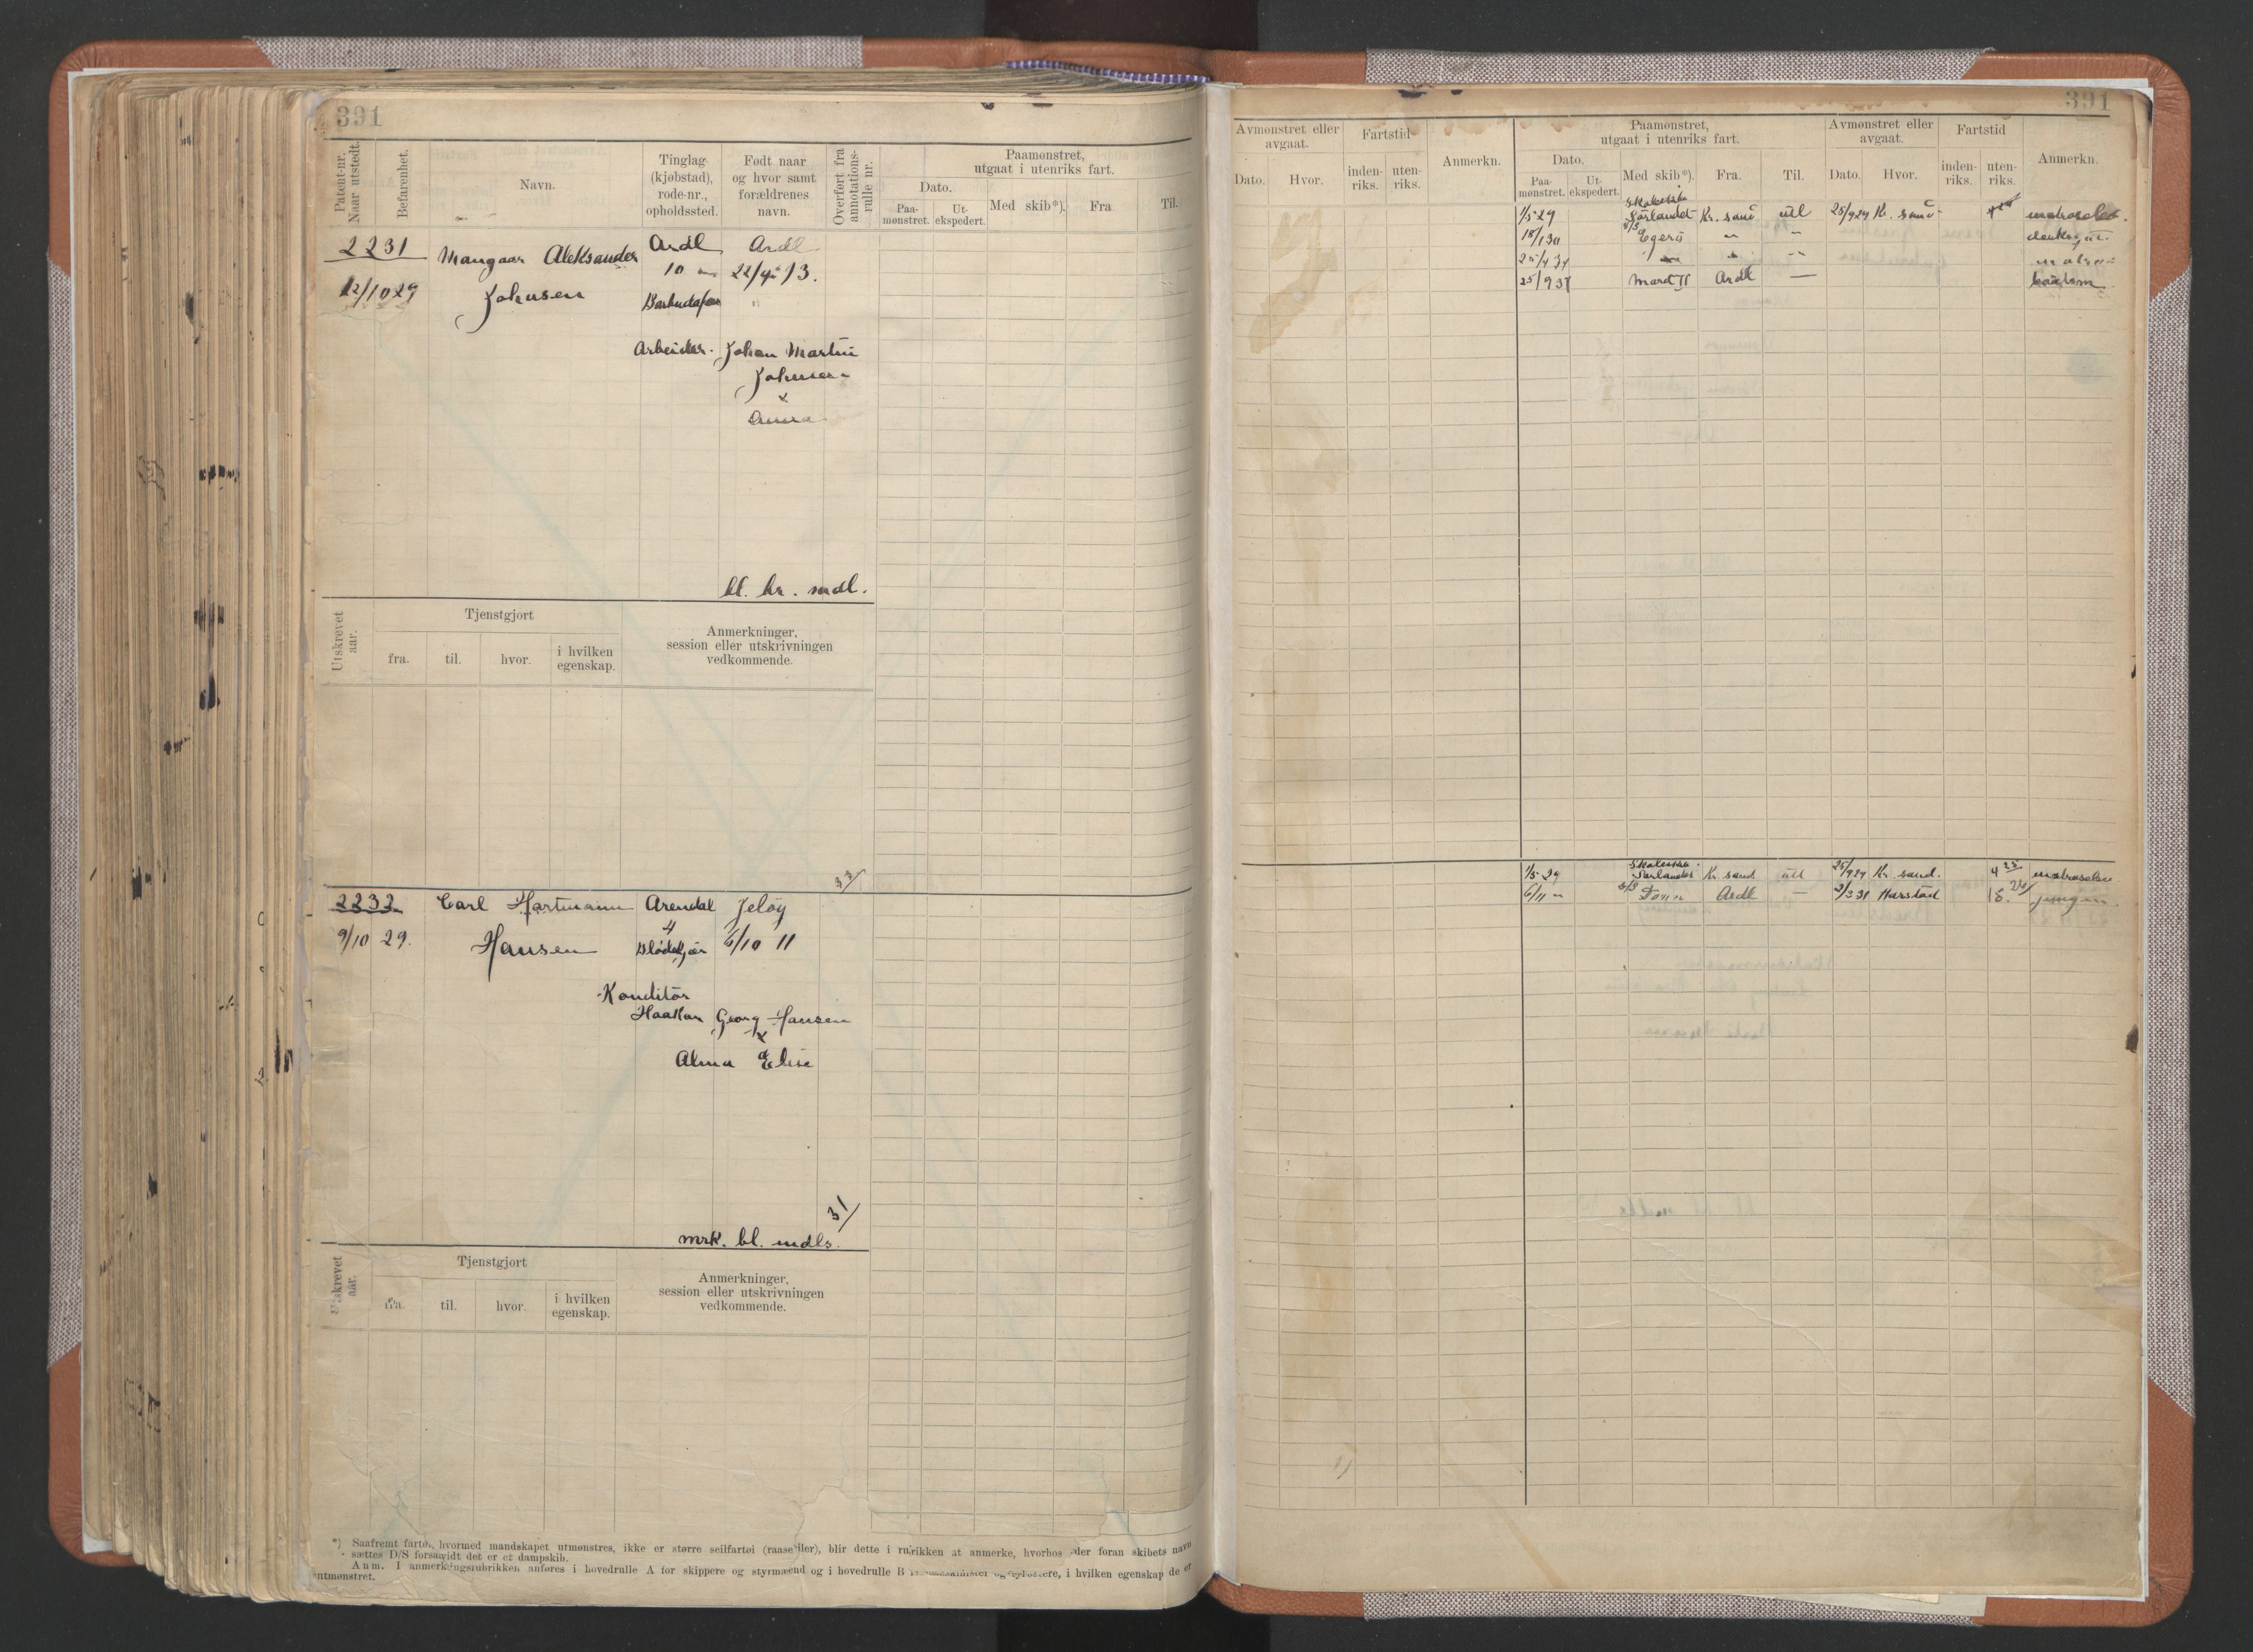 391
Patent-nr. Naar utstedt.
Befarenhet.
Navn.
Tinglag (kjøbstad), rode-nr., opholdssted.
Født naar og hvor samt forældrenes navn.
Overført fra annotations-rulle nr.
Paamønstret, utgaat i utenriks fart.
Dato.
Paa-mønstret.
Ut-ekspedert.
Med skib*).
Fra
Til.
2231
Aleksander
Johnsen
12/10 29
Ardl
10
Arbeider.
Ardl
22/4 13.
Johan Martin
Johnsen
x
Anna
bl. hr. mdl.
Utskrevet aar.
Tjenstgjort
fra.
til.
hvor.
i hvilken egenskap.
Anmerkninger, session eller utskrivningen vedkommende.
33/
2232
Carl Hartmann
Hansen
9/10 29.
Arendal
4
Blødekjær
Jeløy
6/10 11
Konditor
Haakon Georg Hansen
x
Alma Elise
31/
mrk. bl. mdls.
Utskrevet aar.
Tjenstgjort
fra.
til.
hvor.
i hvilken egenskap.
Anmerkninger, session eller utskrivningen vedkommende.
*) Saafremt fartøi, hvormed mandskapet utmønstres, ikke er større seilfartøi (raaseiler), blir dette i rubrikken at anmerke, hvorhos der foran skibets navn
sættes D/S forsaavidt det er et dampskib.
Anm. I anmerkningsrubrikken anføres i hovedrulle A for skippere og styrmænd og i hovedrulle B
i hvilken egenskap de er
utmønstret.
391
Avmønstret eller avgaat.
Fartstid
Anmerkn.
Paamønstret, utgaat i utenriks fart.
Avmønstret eller avgaat.
Fartstid
Anmerkn.
Dato.
Hvor.
inden-riks.
uten-riks.
Dato.
Paa-mønstret.
Ut-ekspedert.
Med skib*).
Fra.
Til.
Dato.
Hvor.
inden-riks.
uten-riks.
1/5 29 Skoleskib Sørlandet Kr. sand utl 25/9 29 Kr. sand
18/1 30 Egerø " "
25/4 34 " " "
25/9 37 Ardl —
1/5 29 Skoleskib Sørlandet Kr. sand utl 25/9 29 Kr. sand. 4 25
6/11 " Ardl — 2/3 31 Harstad